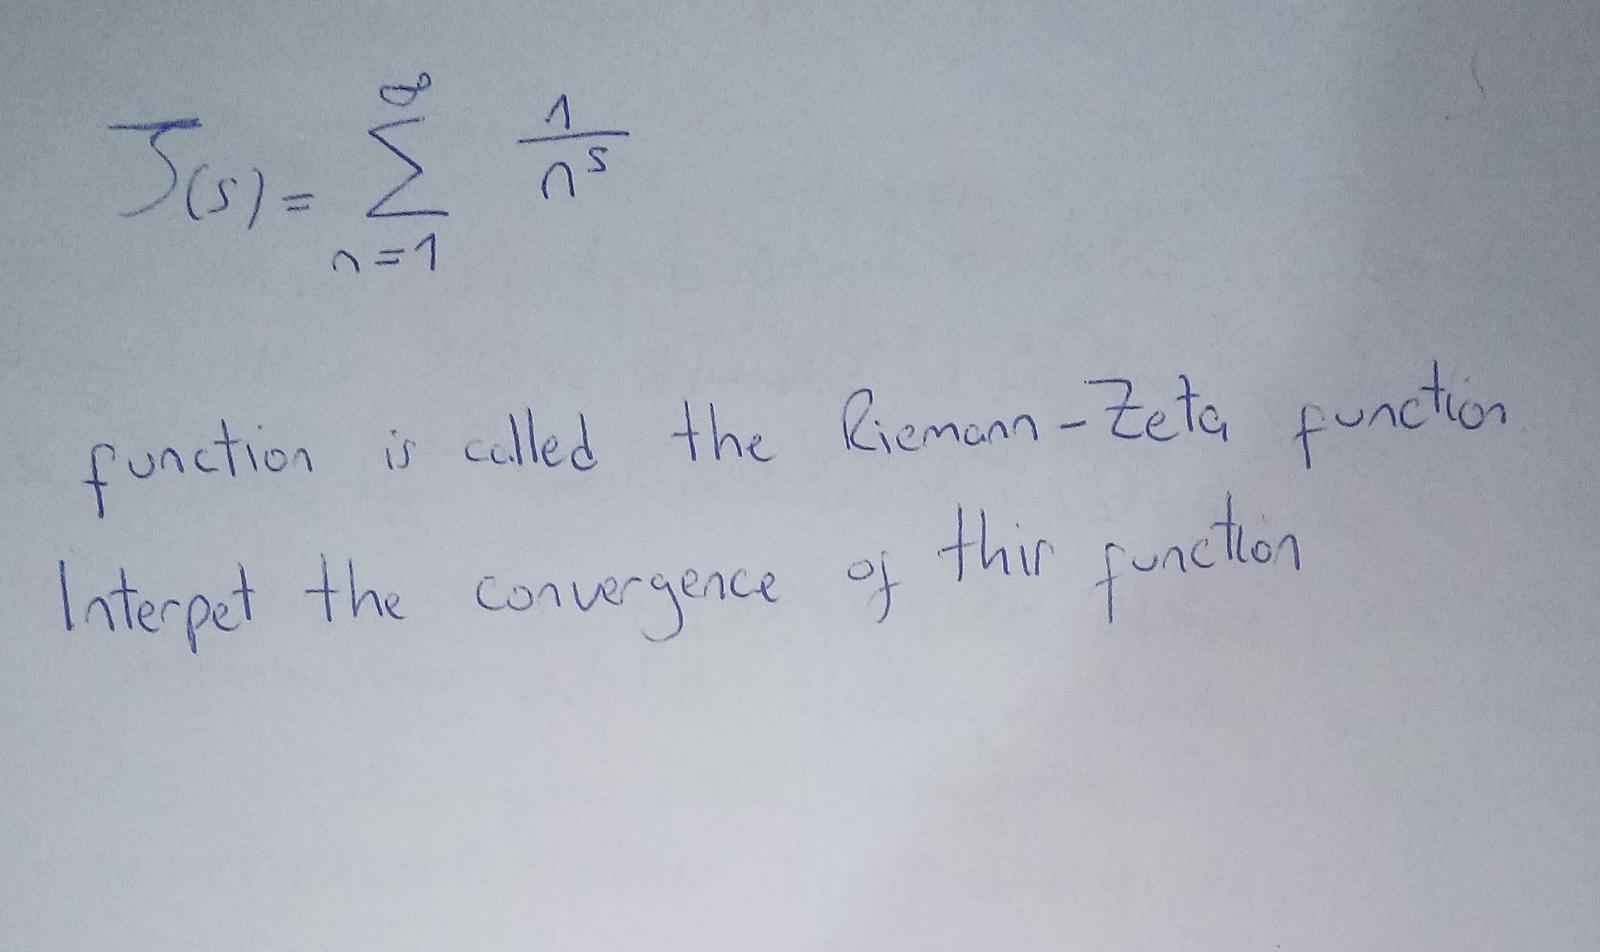 ζ(s) = ∑_{n=1}^{∞} 1/n^s
function is called the Riemann-Zeta function
Interpet the convergence of this function